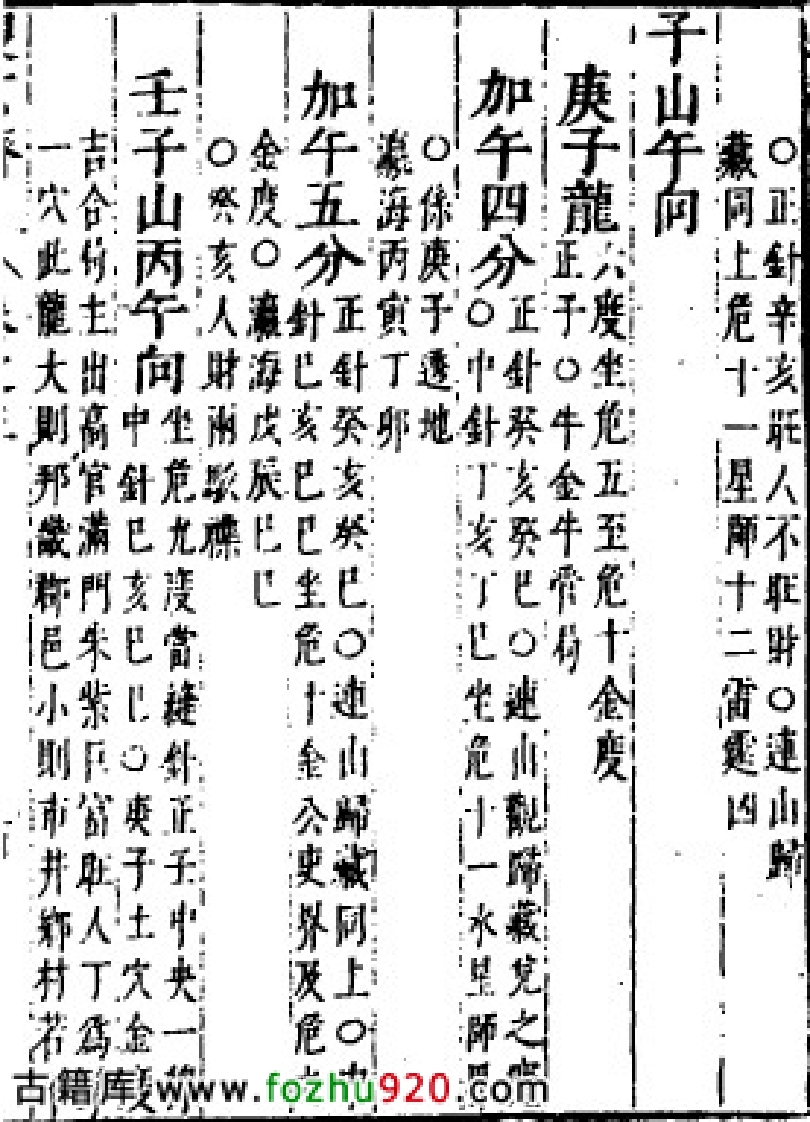 ○正針辛亥旺人不旺財○連山歸
藏同上危十一星師十二雷霆四
子山午向
庚子龍
六度坐危五至危十金度
正子○牛金牛管局
加午四分
正針癸亥癸巳○連山觀歸藏兌之
○中針丁亥丁巳坐危十一水星師
○係庚子透地
瀛海丙寅丁卯
加午五分
正針癸亥癸巳○連山歸藏同上○
針巳亥巳巳坐危十金公吏界及危
金度○瀛海戊辰巳巳
○癸亥人財兩
壬子山丙午向
坐危九度當縫針正子中央一
中針巳亥巳巳○庚子土穴金
吉合格主出高官滿門朱紫巨富旺人丁爲
一穴此龍大則邦畿称邑小則市井鄉村若
古籍库 www.fozhu920.com